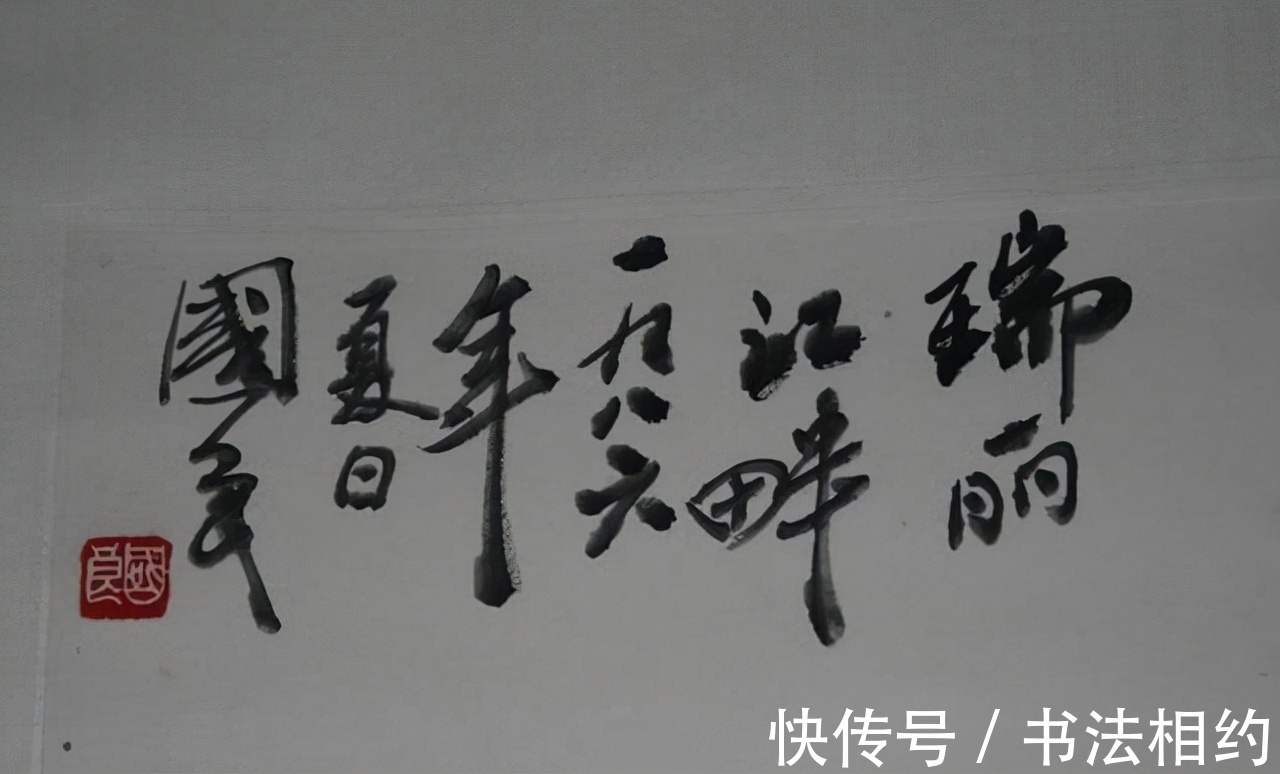 瑞丽
江畔
一九八六
年
夏日
國良
國良
快传号 / 书法相约